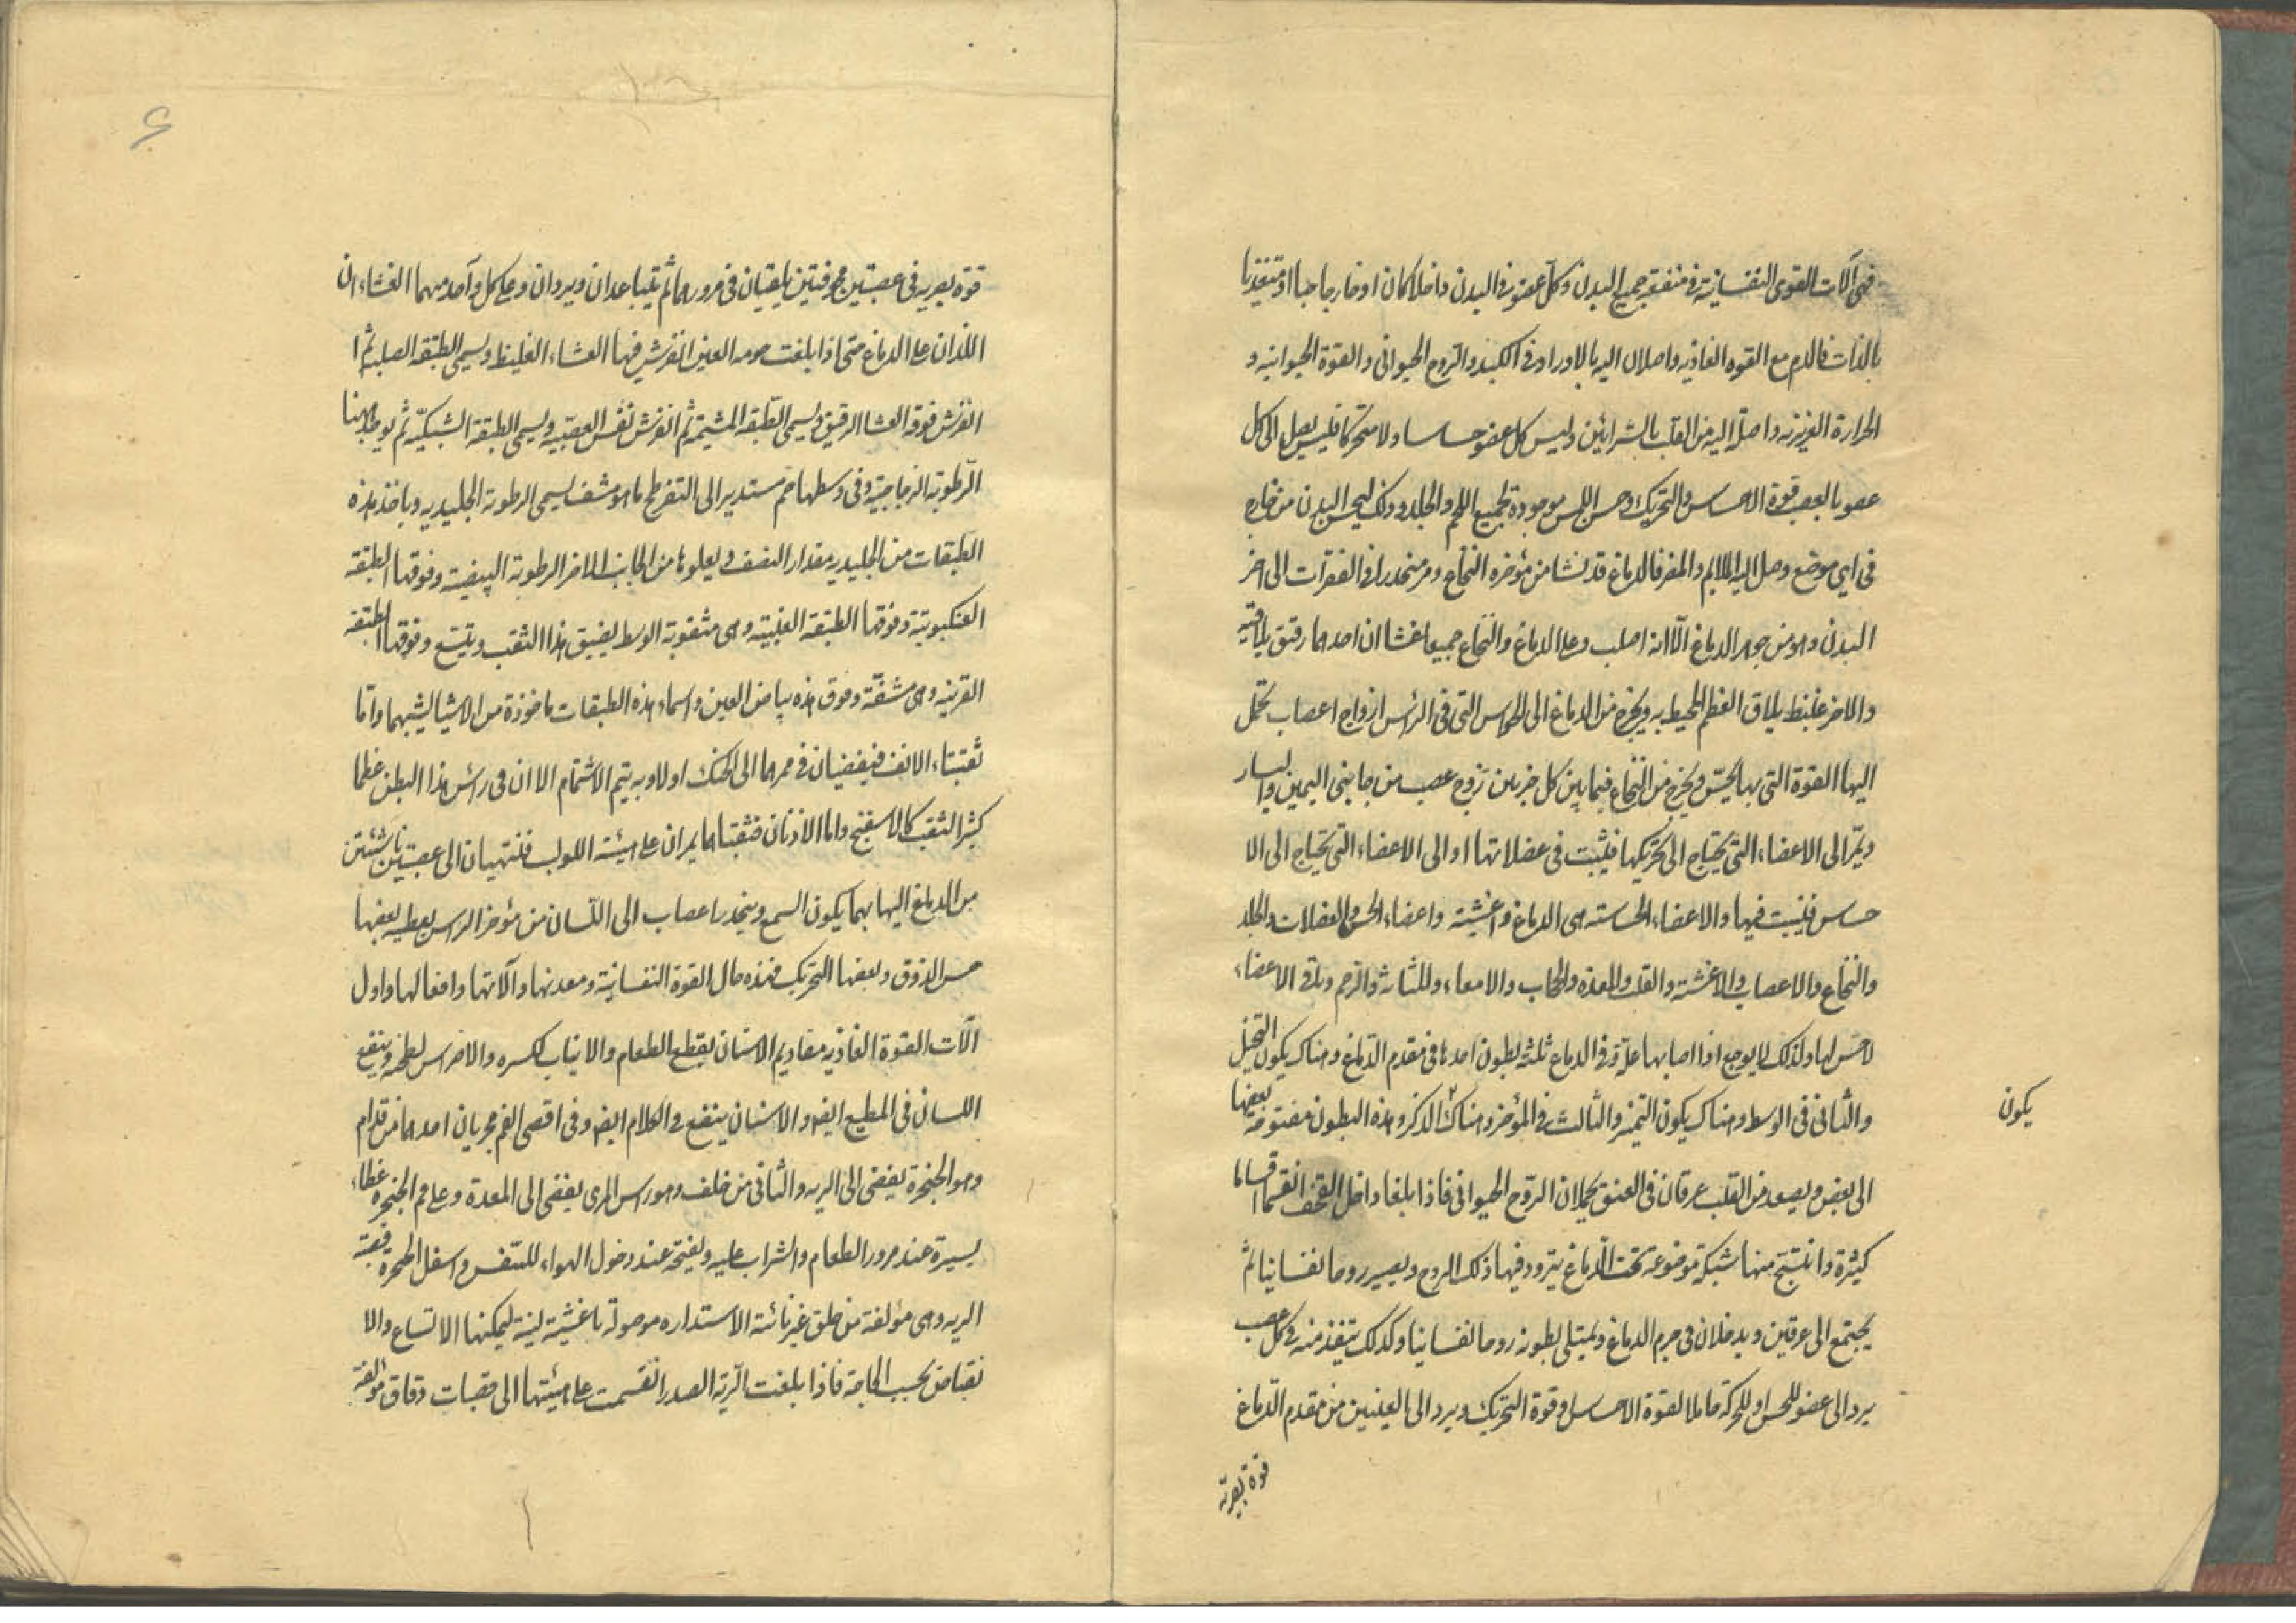 فهى آلات القوى النفسانية فى منفعة جميع البدن وكل عضو فى البدن داخلا كان او خارجا حيا او متغذيا
بالذات فالدم مع القوه الغاذيه واصلان اليه بالاوراد فى الكبد والروح الحيوانى والقوة الحيوانيه و
الحرارة الغريزيه واصلة اليه من القلب بالشرائين وليس كل عضو حساسا ولا متحركا فليس يصل الى كل
عضو بالعصب قوة الاحساس والتحريك وحس اللمس موجودة لجميع اللحم والجلد وذلك ليحس البدن من خارج
فى اى موضع وصل اليه الملايم والمضر فالدماغ قد نشا من مؤخره النخاع ومر منحدرا فى الفقرات الى اخر
البدن وهو من جوهر الدماغ الا انه اصلب وعلى الدماغ والنخاع جميعا غشاان احدهما رقيق يلاقيه
والاخر غليظ يلاقى العظم المحيط به ويخرج من الدماغ الى الحواس التى فى الراس ازواج اعصاب تحمل
اليها القوة التى بها تحس ويخرج من النخاع فيما بين كل خرزتين زوج عصب من جانبى اليمين واليسار
ويمر الى الاعضاء التى يحتاج الى تحريكها فينبت فى عضلاتها او الى الاعضاء التى يحتاج الى الا
حساس فينبت فيها والاعضاء الحساسة هى الدماغ واغشيته واعضاء الحس والعضلات والجلد
والنخاع والاعصاب والاغشية والقلب والمعده والحجاب والامعاء والمثانة والرحم وباقى الاعضاء
لا حس لها ولذلك لا يوجع اذا اصابها علة وفى الدماغ ثلثة بطون احدها فى مقدم الدماغ وهناك يكون التخيل
والثانى فى الوسط وهناك يكون التميز والثالث فى المؤخر وهناك الذكر وهذه البطون مفتوحة بعضها
يكون
الى بعض ويصعد من القلب عرقان فى العنق يحملان الروح الحيوانى فاذا بلغا داخل القحف انقسما اقساما
كثيرة وانتسج منها شبكة موضوعة تحت الدماغ يتردد فيها ذلك الروح ويصير روحا نفسانيا ثم
يجتمع الى عرقين ويدخلان فى جرم الدماغ ويمتلى بطونه روحا نفسانيا وكذلك ينفذ منه فى كل عصب
يرد الى عضو للحس او للحركة حاملا لقوة الاحساس وقوة التحريك ويرد الى العينين من مقدم الدماغ
قوة بصرية
۶
قوة بصريه فى عصبتين مجوفتين يلتقيان فى مرورهما ثم يتباعدان ويردان وعلى كل واحد منهما الغشاءان
اللذان على الدماغ حتى اذا بلغت حومه العين انفرش فيها الغشاء الغليظ ويسمى الطبقه الصلبه ثم ا
انفرش فوقه الغشا الرقيق ويسمى الطبقه المشيمة ثم انفرش نفس العصبيه ويسمى الطبقة الشبكيه ثم يوجد ههنا
الرطوبة الزجاجية وفى وسطها جسم مستدير الى التفرطح ما هو مشف يسمى الرطوبة الجليديه وياخذ هذه
الطبقات من الجليديه مقدار النصف ويعلوها من الجانب الاخر الرطوبة البيضية وفوقها الطبقة
العنكبوتية وفوقها الطبقة العنبيه وهى مثقوبة الوسط يضيق هذا الثقب ويتسع وفوقها الطبقة
القرنيه وهى مشفة وفوق هذه بياض العين واسماء هذه الطبقات ماخوذة من الاشيا لشبهها واما
ثقبتاء الانف فيفضيان فى ممرهما الى الحنك اولا وبه يتم الاشتمام الا ان فى راس هذا البطن عظما
كثير الثقب كالاسفنج واما الاذنان فثقبتاهما يمران على هيئة اللولب فتنتهيان الى عصبتين ناشئتين
من الدماغ اليها بهما يكون السمع وينحدر اعصاب الى اللسان من مؤخر الراس يعطيه بعضها
حس الذوق وبعضها التحريك فهذه حال القوة النفسانية ومعدنها وآلاتها وافعالها واول
آلات القوة الغاذيه مقاديم الاسنان يقطع الطعام والانياب لكسره والاضراس لطحنه وينفع
اللسان فى المطيع ايض والاسنان ينفع فى الكلام ايض وفى اقصى الفم مجريان احدهما من قدام
وهو الحنجرة يفضى الى الريه والثانى من خلف وهو راس المرى يفضى الى المعدة وعلى فم الحنجره غطاء
يسيره عند مرور الطعام والشراب عليه ويفتحه عند دخول الهواء للتنفس واسفل الحنجرة قصبة
الريه وهى مؤلفة من حلق غير تامة الاستداره موصولة باغشية لينة ليمكنها الاتساع والا
نقباض بحسب الحاجة فاذا بلغت الرية الصدر انقسمت على هيئتها الى قصبات دقاق مؤلفة